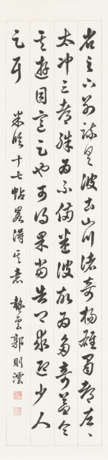 省足下別疏具彼土山川諸奇楊雄蜀都左
太冲三都殊為不備悉彼故為多奇益令
其遊目意足也可得果當告卿求迎少人
足耳 臨十七帖畧得其意 蟄雲郭則澐